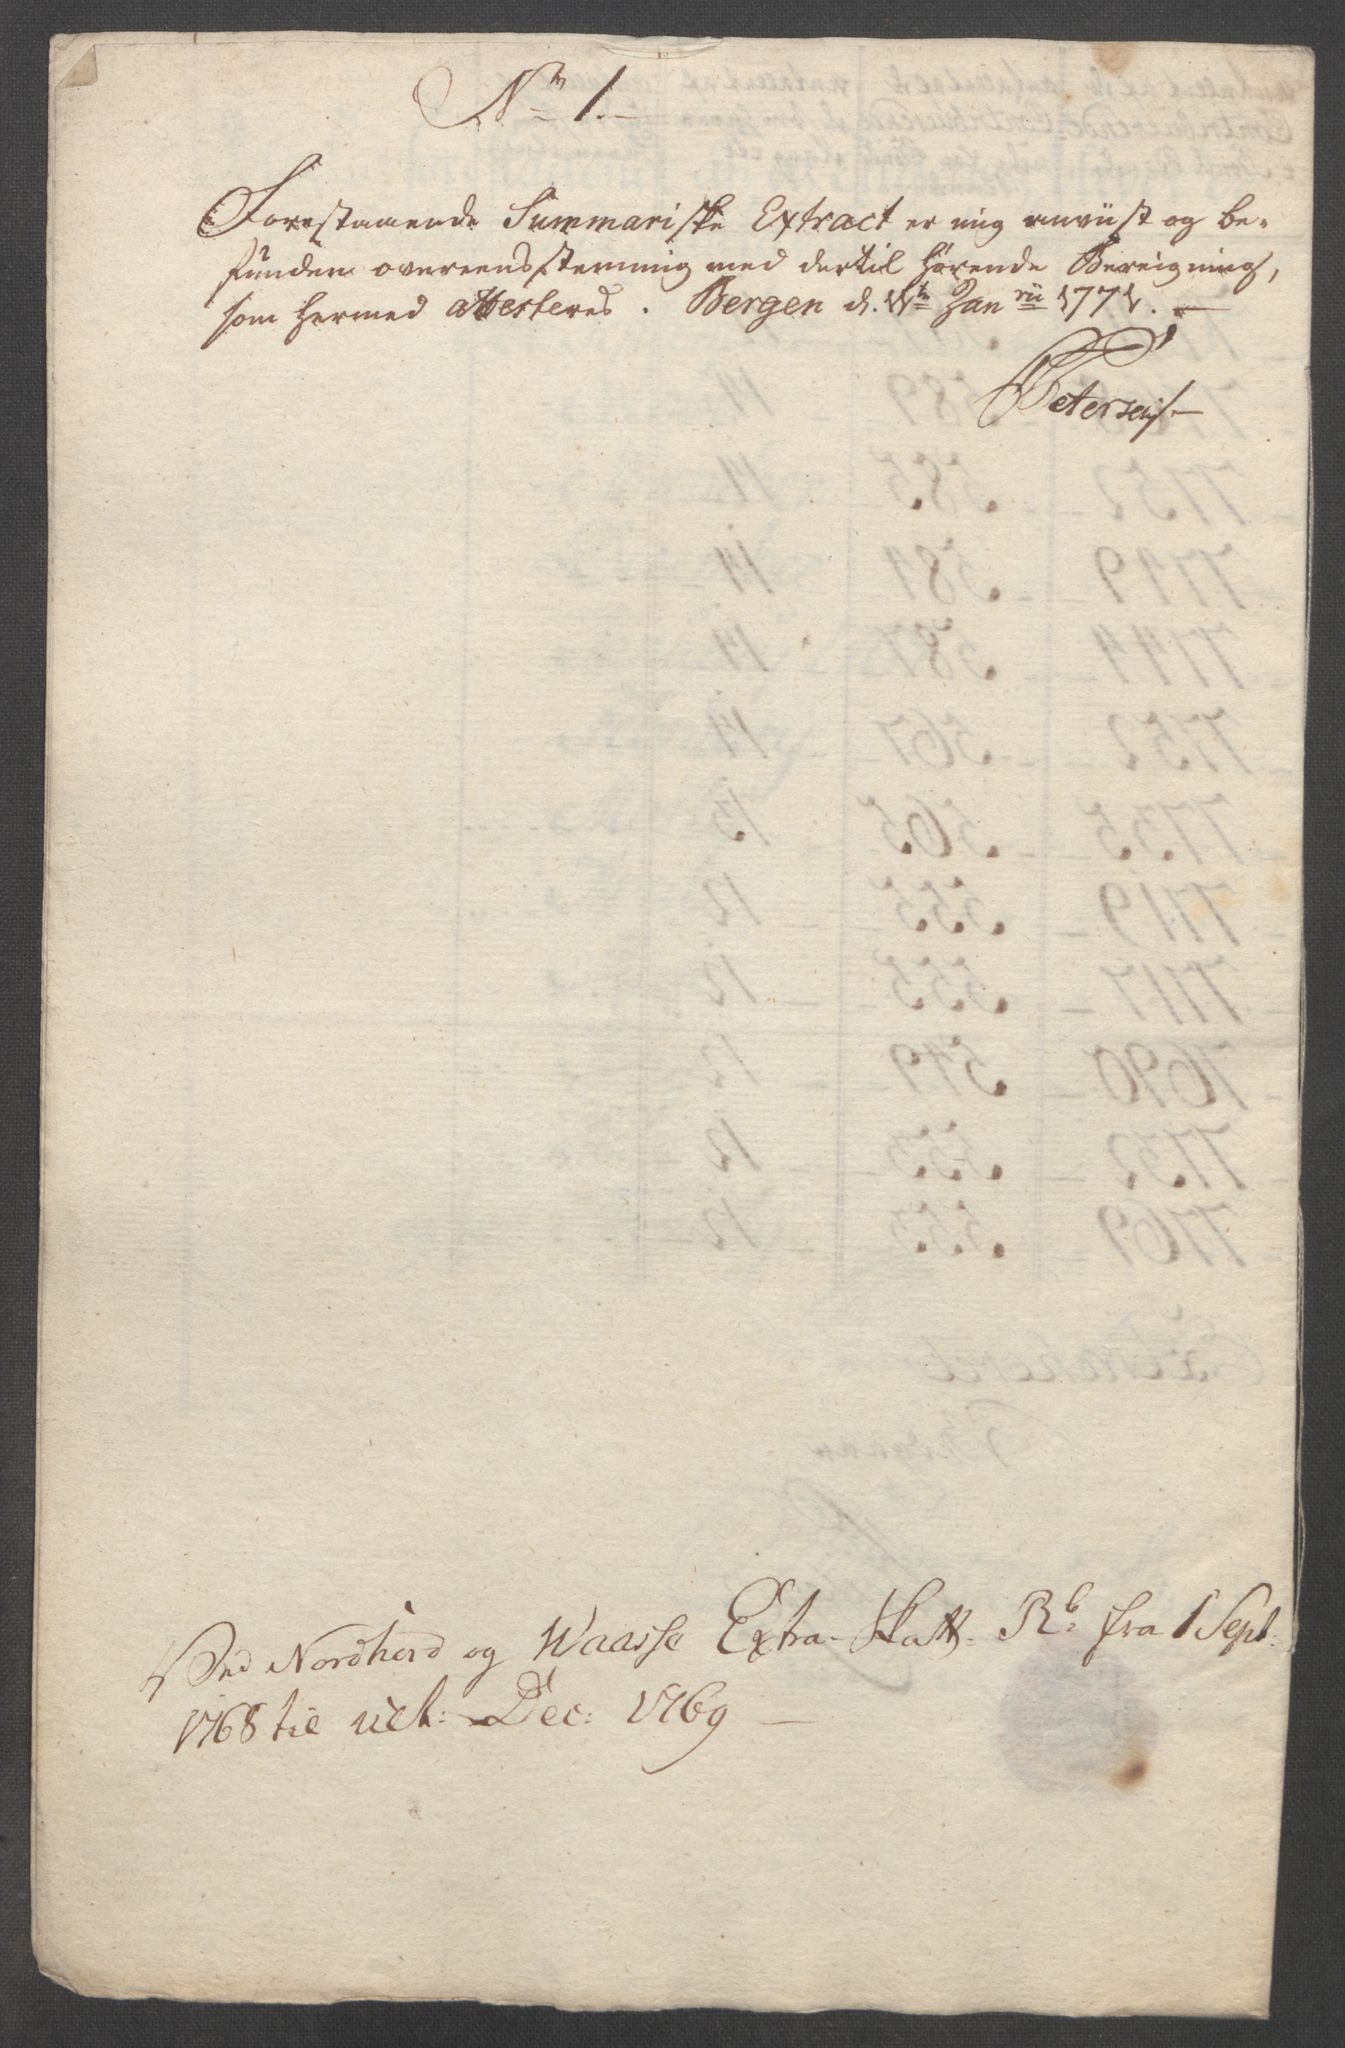 Nº 1.
Forestaaende Summariske Extract er mig anviist og be-
funden overeensstemmig med dertil hørende Bereigning,
som hermed attesteres. Bergen d. Janrii 1771.
Petersen
Ved Nordhord og Waasse Extra-Skatt. Rb: fra 1 Sept:
1768 til ult: Dec: 1769